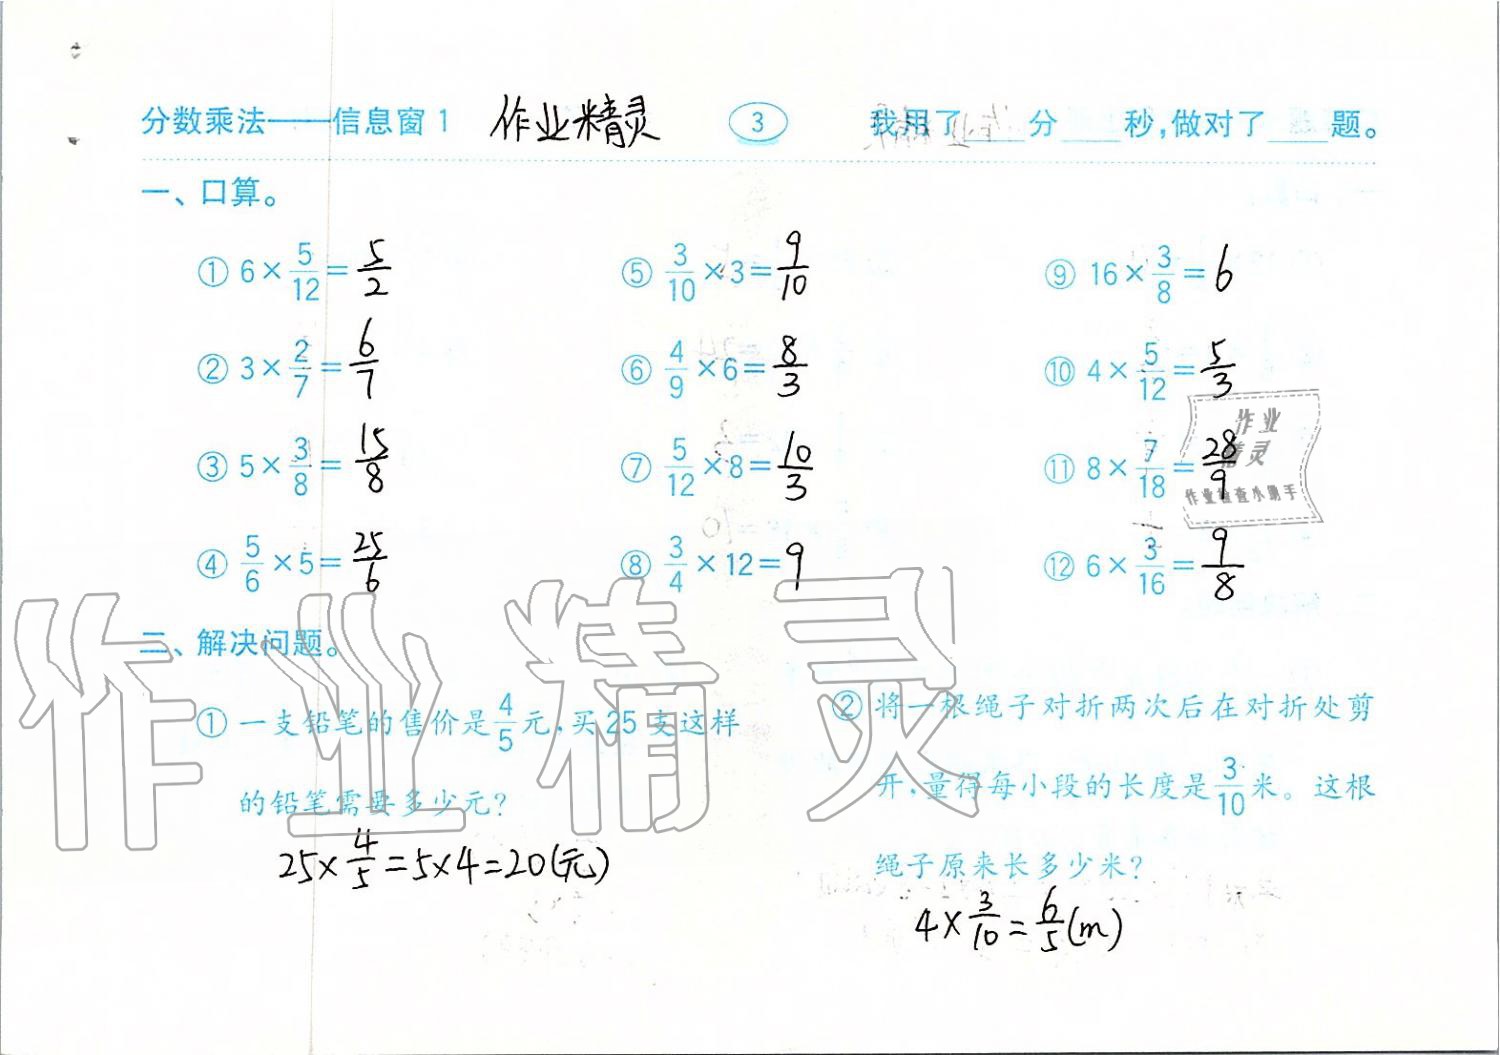 分数乘法——信息窗1 作业精灵 3 我用了____分____秒,做对了____题。
一、口算。
① 6×5/12=5/2 ⑤ 3/10×3=9/10 ⑨ 16×3/8=6
② 3×2/7=6/7 ⑥ 4/9×6=8/3 ⑩ 4×5/12=5/3
③ 5×3/8=15/8 ⑦ 5/12×8=10/3 ⑪ 8×7/18=28/9
④ 5/6×5=25/6 ⑧ 3/4×12=9 ⑫ 6×3/16=9/8
作业
精灵
作业检查小助手
二、解决问题。
① 一支铅笔的售价是4/5元,买25支这样
的铅笔需要多少元?
25×4/5=5×4=20(元)
② 将一根绳子对折两次后在对折处剪
开,量得每小段的长度是3/10米。这根
绳子原来长多少米?
4×3/10=6/5(m)
作业精灵